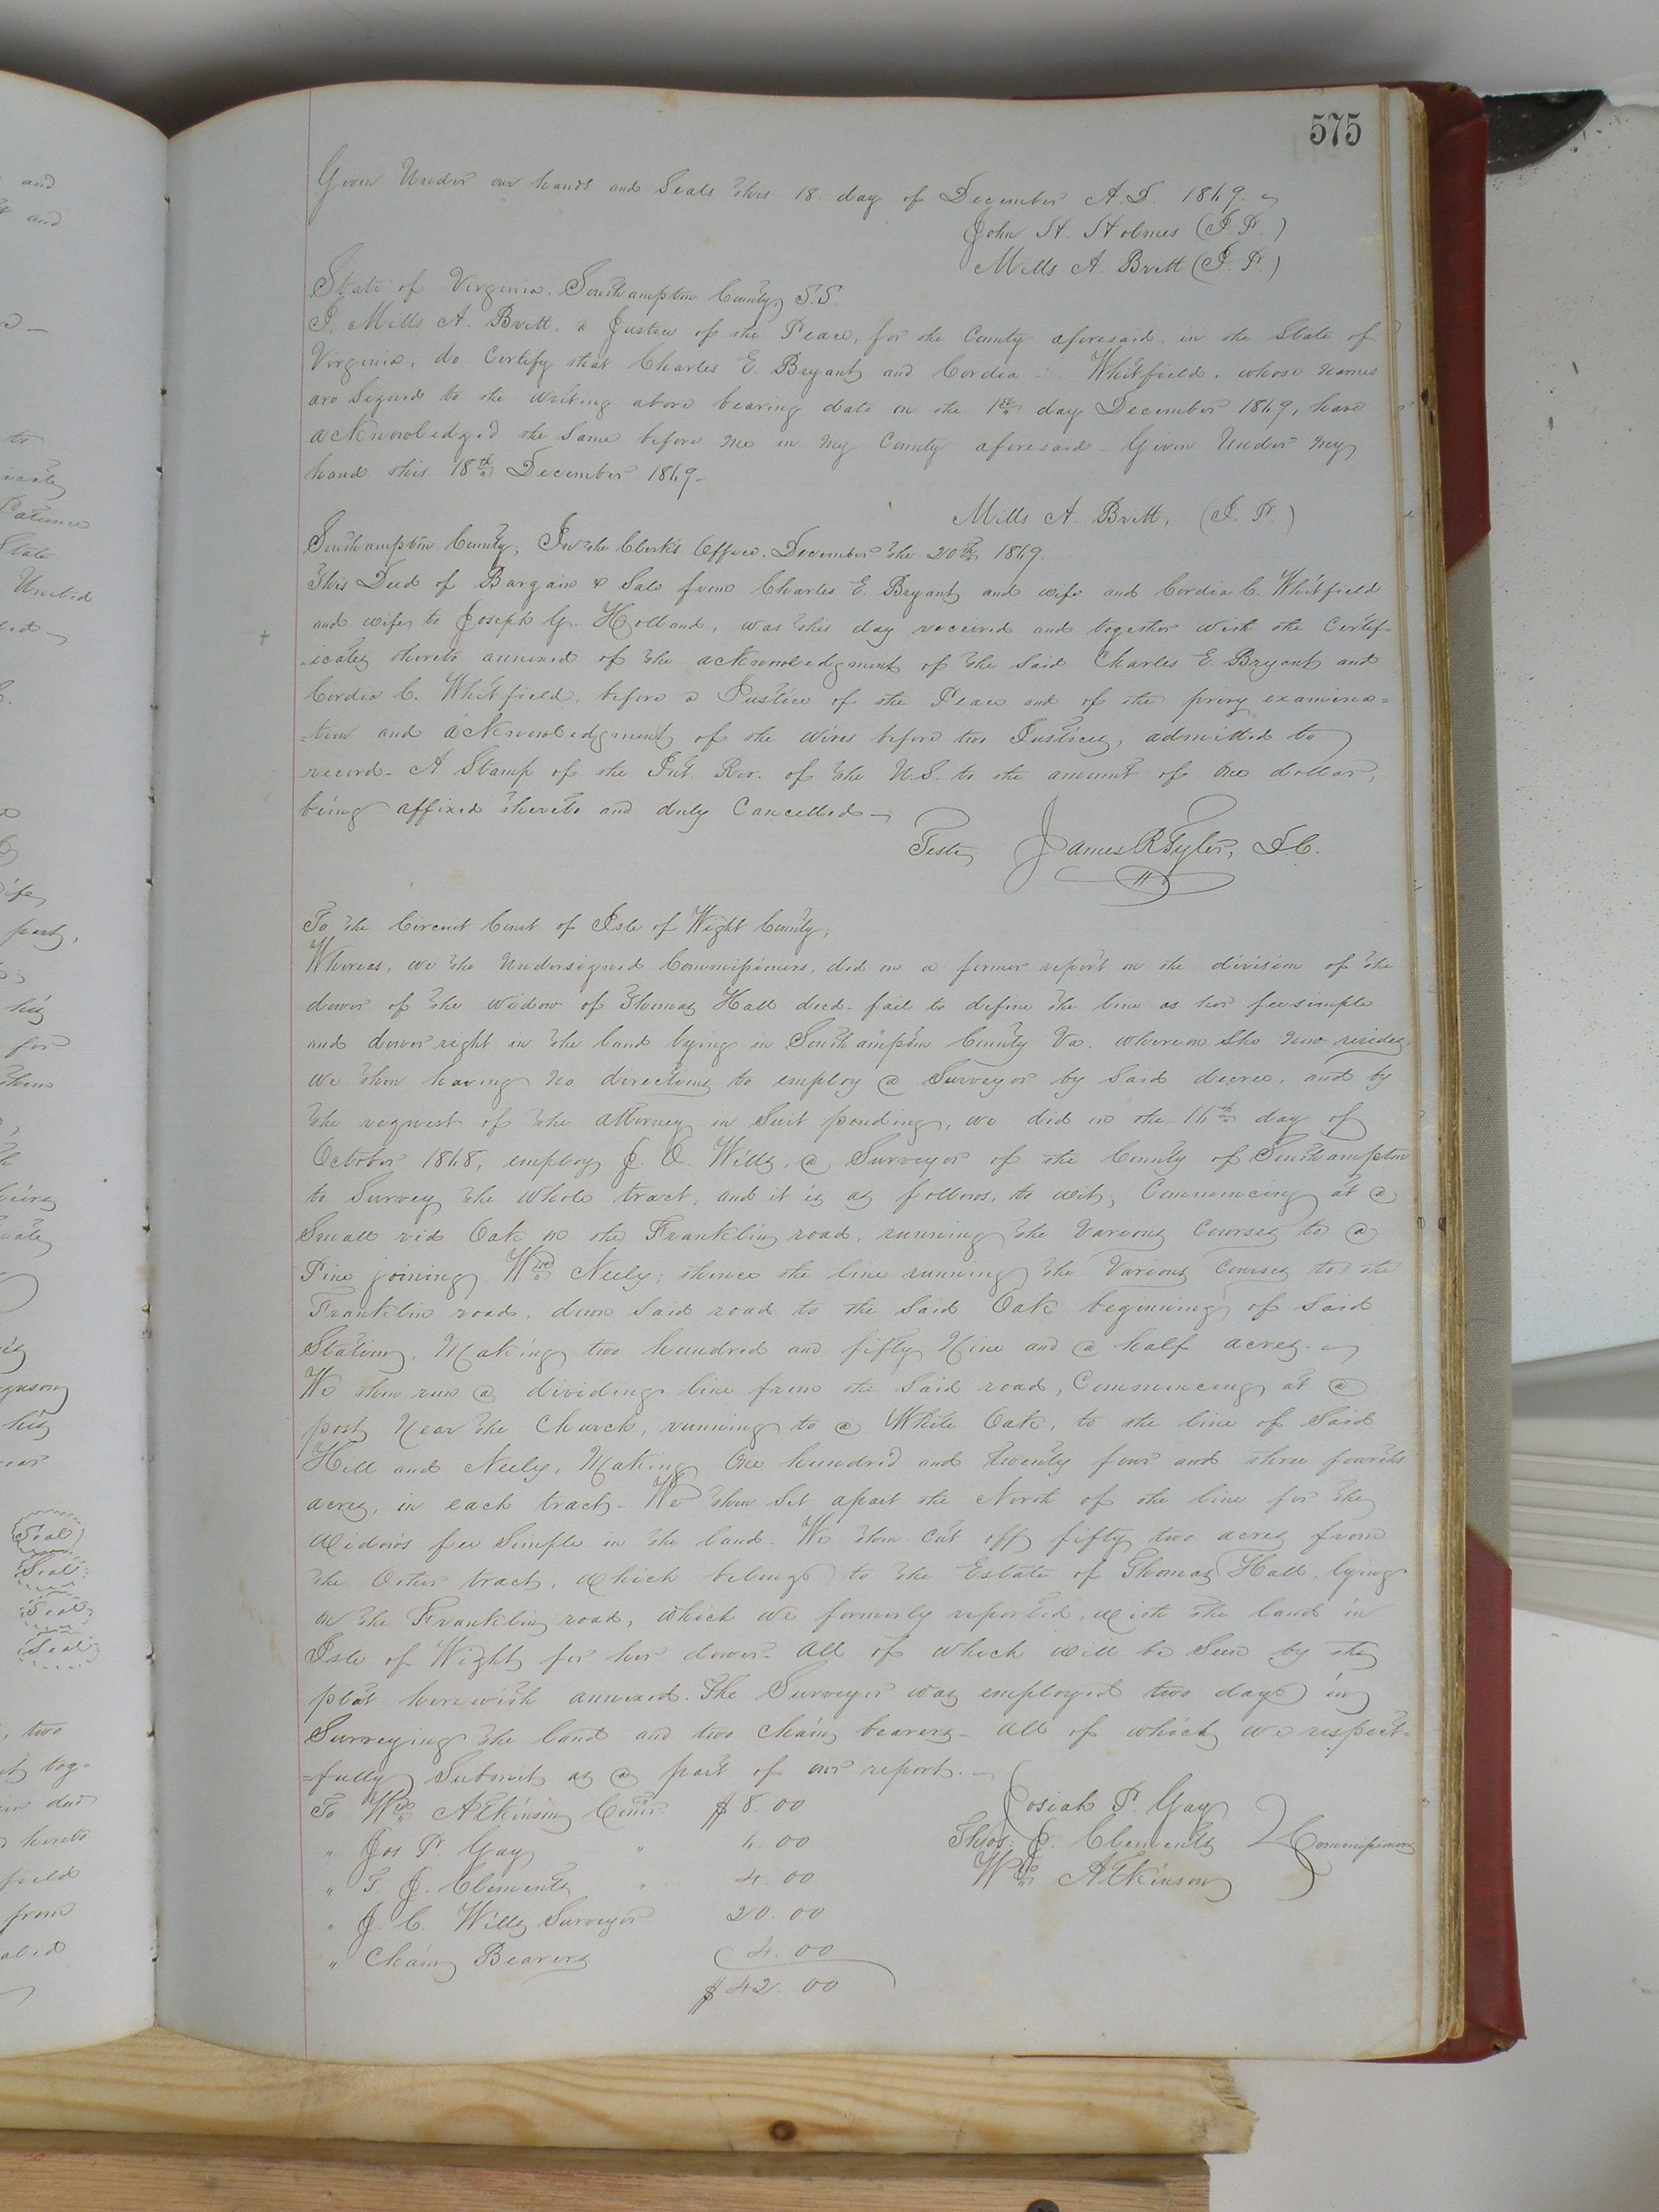 575
Given Under our hands and Seals this 18. day of December A.D. 1869.
John H. Holmes (J. P.)
Mills A. Britt (J. P.)
State of Virginia. Southampton County, S.S.
I, Mills A. Britt, a Justice of the Peace, for the County aforesaid, in the State of
Virginia, do Certify that Charles E. Bryant and Cordia Whitfield, whose names
are Signed to the Writing above bearing date on the 1st day December 1869, have
acknowledged the Same before me in my County aforesaid. Given Under my
hand this 18th December 1869.
Mills A. Britt, (J. P.)
Southampton County; In the Clerk's Office, December the 20th 1869.
This Deed of Bargain & Sale from Charles E. Bryant and wife and Cordia C. Whitfield
and wife to Joseph G. Holland, was this day received and together with the Certif-
-icates thereto annexed of the acknowledgment of the Said Charles E. Bryant and
Cordia C. Whitfield, before a Justice of the Peace and of the privy examina=
=tion and acknowledgment of the wives before two Justices, admitted to
record. A Stamp of the Int. Rev. of the U.S. to the amount of One dollar,
being affixed thereto and duly Cancelled
Teste, James R Tyler, D.C.
To the Circuit Court of Isle of Wight County;
Whereas, we the Undersigned Commissioners, did in a former report on the division of the
dower of the widow of Thomas Hall decd. fail to define the line as her feesimple
and dower right in the land lying in Southampton County Va. whereon She now resides,
We then having no directions to employ a Surveyor by Said decree, and by
the request of the attorney in Suit pending, we did on the 16th day of
October 1868, employ J. C. Wills, a Surveyor of the County of Southampton
to Survey the whole tract, and it is as follows, to wit; Commencing at a
Small red Oak on the Franklin road, running the Various Courses to a
Pine joining Wm Neely; thence the line running the Various Courses to the
Franklin road, down Said road to the Said Oak beginning of Said
Station, Making two hundred and fifty Nine and a half acres.
We then run a dividing line from the Said road, Commencing at a
post Near the Church, running to a White Oak, to the line of Said
Hill and Neely, Making One hundred and twenty four and three fourths
acres, in each tract. We then Set apart the North of the line for the
Widows fee Simple in the land. We then cut off fifty two acres from
the Other tract, which belongs to the Estate of Thomas Hall, lying
on the Franklin road, which we formerly reported, with the land in
Isle of Wight for her dower. All of which will be Seen by the
plat herewith annexed. The Surveyor was employed two days in
Surveying the land and two Chain bearers. All of which we respect=
=fully Submit as a part of our report.
To Wm Atkinson Comr $8.00
" Jos P. Gay " 6.00
" T. J. Clements " 4.00
" J. C. Wills Surveyor 20.00
" Chain Bearers 4.00
$42.00
Josiah P. Gay
Thos. J. Clements
Wm Atkinson
Commissioners